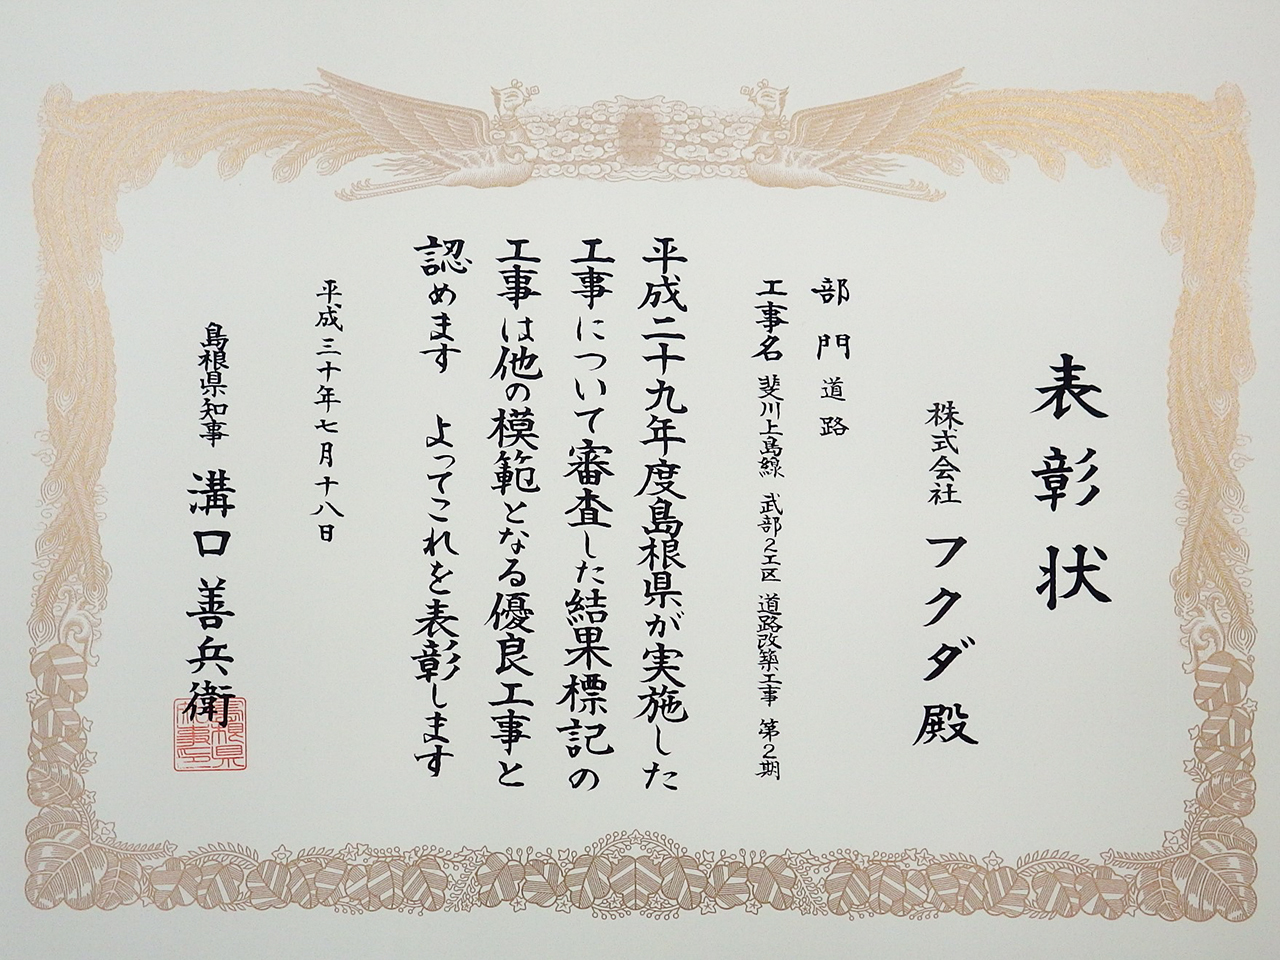 表彰状
株式会社 フクダ 殿
部門 道路
工事名 斐川上島線 武部2工区 道路改築工事 第2期
平成二十九年度島根県が実施した
工事について審査した結果標記の
工事は他の模範となる優良工事と
認めます よってこれを表彰します
平成三十年七月十八日
島根県知事 溝口善兵衛
島根県知事印